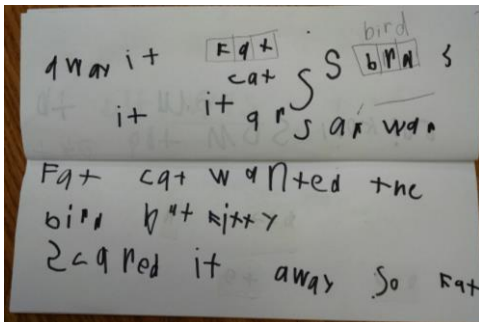 bird
away it Fat S brd s
cat S
it it ar s ar war
Fat cat wanted the
bird but Kitty
Scared it away So Fat